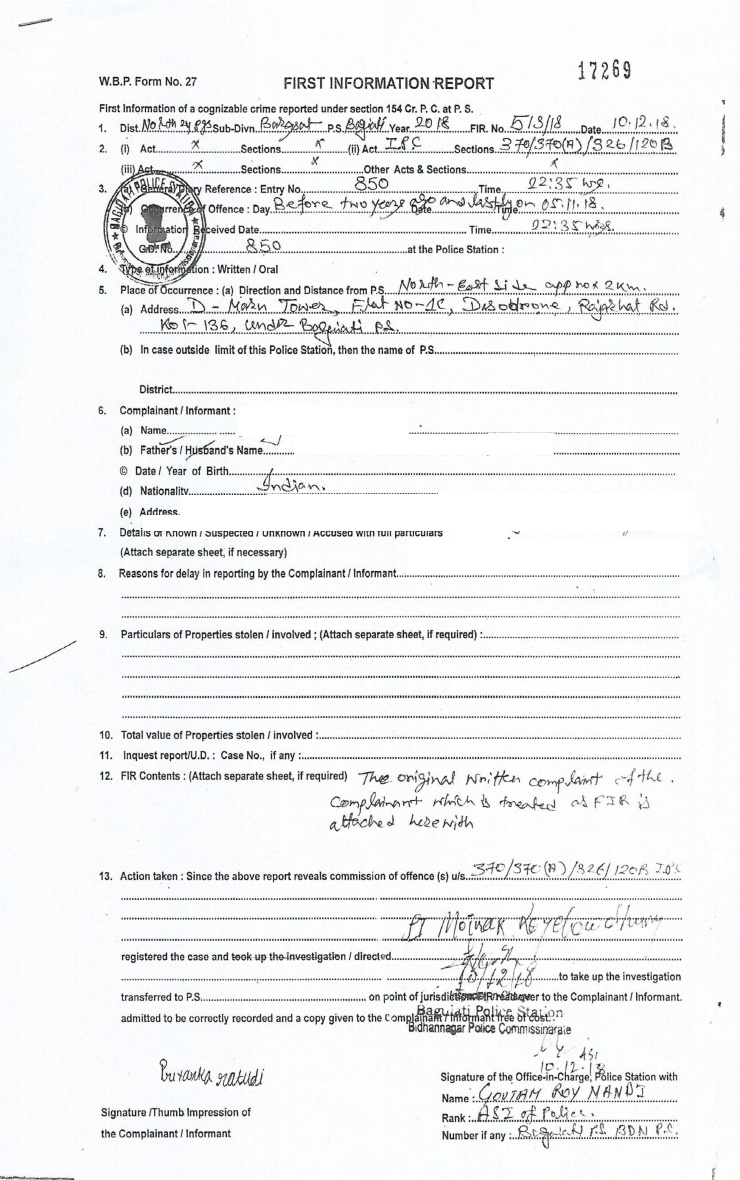 17269
W.B.P. Form No. 27 FIRST INFORMATION REPORT
First Information of a cognizable crime reported under section 154 Cr. P. C. at P. S.
1. Dist. North 24 pgs Sub-Divn. Barasat P.S. Baguiati Year 2018 FIR. No. 513/18 Date 10.12.18.
2. (i) Act x Sections x (ii) Act IPC Sections 370/370(A)/326/120B
(iii) Act x Sections x Other Acts & Sections x
3. (a) General Diary Reference : Entry No. 850 Time 22:35 hrs.
Occurrence of Offence : Day Before two years ago and lastly on 05.11.18. Date Time
© Information Received Date Time 22:35 hrs.
G.D. No. 850 at the Police Station :
4. Type of Information : Written / Oral
5. Place of Occurrence : (a) Direction and Distance from P.S. North-East side approx 2 km.
(a) Address D - Tower, Flat No-1C, Rajarhat Rd.
Kol-136, under Baguiati P.S.
(b) In case outside limit of this Police Station, then the name of P.S.
District
6. Complainant / Informant :
(a) Name
(b) Father's / Husband's Name
© Date / Year of Birth
(d) Nationality Indian.
(e) Address.
7. Details of Known / Suspected / Unknown / Accused with full particulars
(Attach separate sheet, if necessary)
8. Reasons for delay in reporting by the Complainant / Informant
9. Particulars of Properties stolen / involved ; (Attach separate sheet, if required) :
10. Total value of Properties stolen / involved :
11. Inquest report/U.D. : Case No., if any :
12. FIR Contents : (Attach separate sheet, if required) The original written complaint of the
Complainant which is treated as FIR is
attached herewith
13. Action taken : Since the above report reveals commission of offence (s) u/s. 370/370(A)/326/120B IPC
PI Moinak
registered the case and took up the investigation / directed
10/12/18 to take up the investigation
transferred to P.S. on point of jurisdiction FIR read over to the Complainant / Informant.
admitted to be correctly recorded and a copy given to the Complainant / Informant free of cost.
Baguiati Police Station
Bidhannagar Police Commissinarate
ASI
10.12.18
Priyanka
Signature of the Office-in-Charge, Police Station with
Name : GOUTAM ROY MANDI
Signature /Thumb Impression of
Rank : ASI of Police.
the Complainant / Informant
Number if any : Baguiati PS BDN P.C.